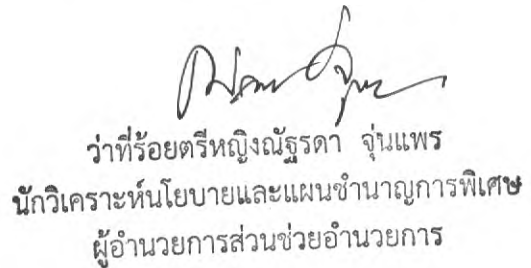 ว่าที่ร้อยตรีหญิงณัฐรดา จุ่นแพร
นักวิเคราะห์นโยบายและแผนชำนาญการพิเศษ
ผู้อำนวยการส่วนช่วยอำนวยการ